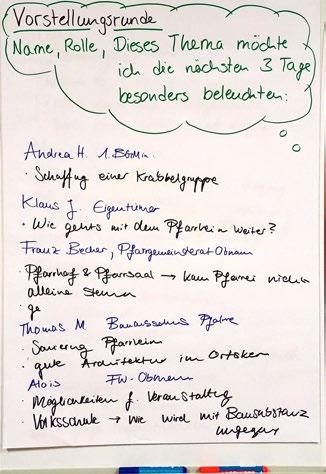 Vorstellungsrunde
Name, Rolle, Dieses Thema möchte
ich die nächsten 3 Tage
besonders beleuchten:
Andrea H. 1. BGMin.
· Schaffug einer Krabbelgruppe
Klaus J. Eigentümer
· Wie gehts mit dem Pfarrheim weiter?
Franz Becher, Pfarrgemeinderat Obmann
· Pfarrhof & Pfarrsaal → kann Pfarrei nicht
alleine stemmen
· ge
Thomas M. Bauausschuss Pfarre
· Sanierung Pfarrheim
· gute Architektur im Ortskern
Alois FW-Obmann
· Möglichkeiten f. Veranstaltung
· Volksschule → wie wird mit Bausubstanz